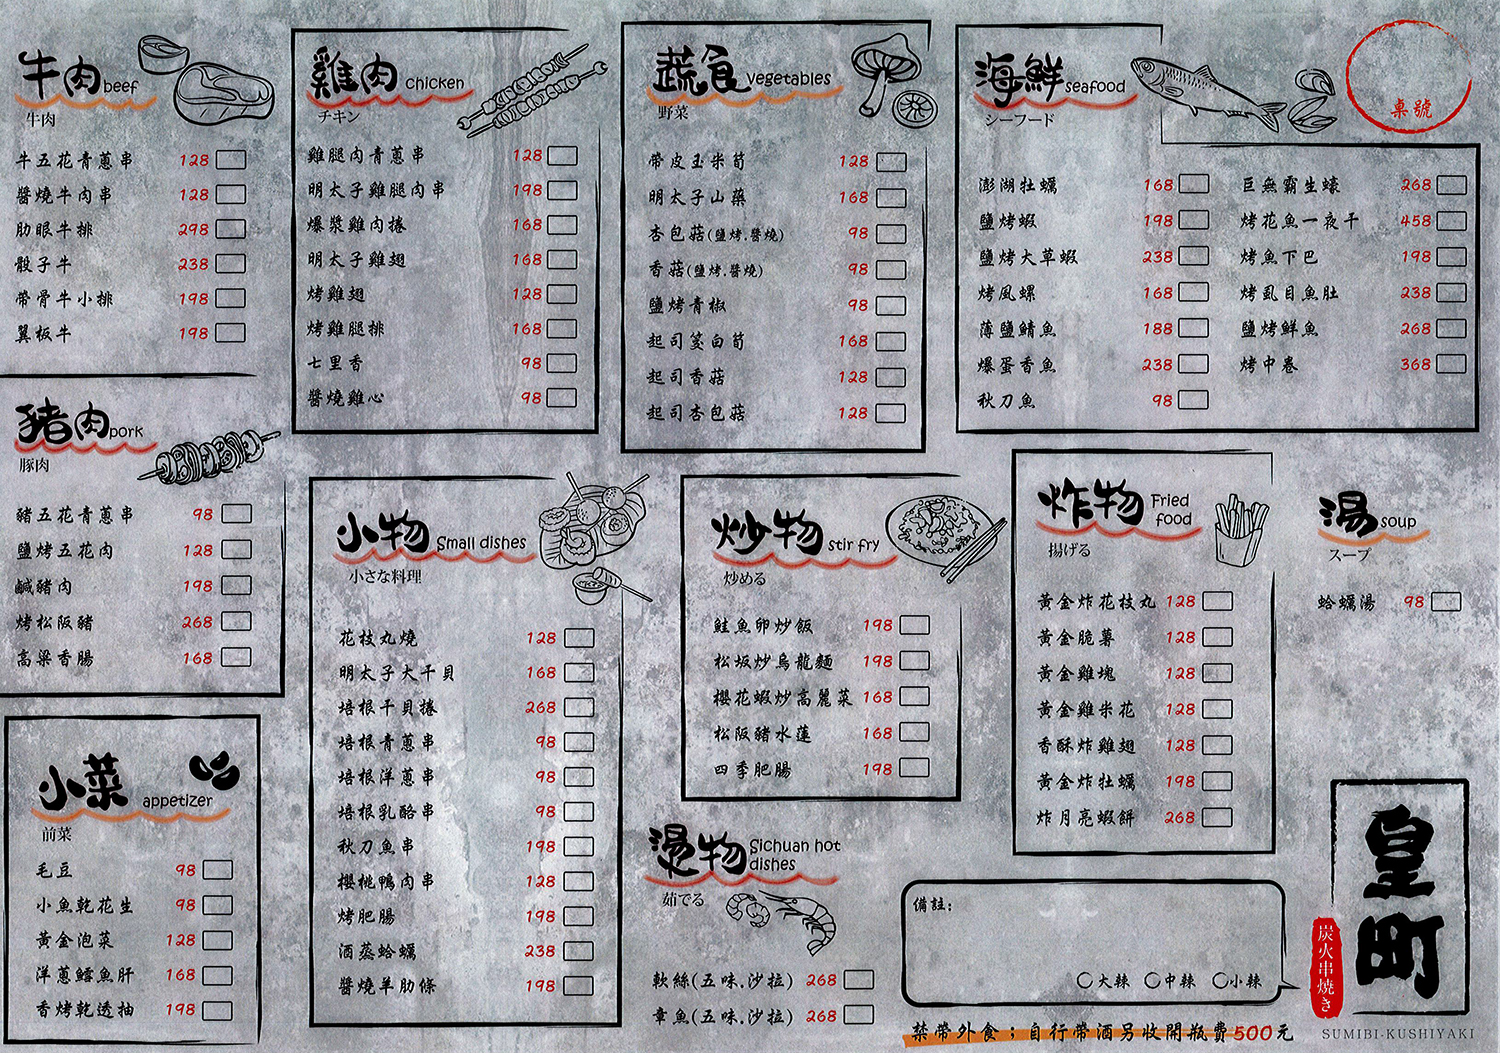 牛肉 beef
牛肉
牛五花青蔥串 128
醬燒牛肉串 128
肋眼牛排 298
骰子牛 238
帶骨牛小排 198
翼板牛 198
豬肉 pork
豚肉
豬五花青蔥串 98
鹽烤五花肉 128
鹹豬肉 198
烤松阪豬 268
高粱香腸 168
小菜 appetizer
前菜
毛豆 98
小魚乾花生 98
黃金泡菜 128
洋蔥鱈魚肝 168
香烤乾透抽 198
雞肉 chicken
チキン
雞腿肉青蔥串 128
明太子雞腿肉串 198
爆漿雞肉捲 168
明太子雞翅 168
烤雞翅 128
烤雞腿排 168
七里香 98
醬燒雞心 98
小物 Small dishes
小さな料理
花枝丸燒 128
明太子大干貝 168
培根干貝捲 268
培根青蔥串 98
培根洋蔥串 98
培根乳酪串 98
秋刀魚串 198
櫻桃鴨肉串 128
烤肥腸 198
酒蒸蛤蠣 238
醬燒羊肋條 198
蔬食 vegetables
野菜
帶皮玉米筍 128
明太子山藥 168
杏包菇(鹽烤.醬燒) 98
香菇(鹽烤.醬燒) 98
鹽烤青椒 98
起司筊白筍 168
起司香菇 128
起司杏包菇 128
炒物 stir fry
炒める
鮭魚卵炒飯 198
松坂炒烏龍麵 198
櫻花蝦炒高麗菜 168
松阪豬水蓮 168
四季肥腸 198
燙物 Sichuan hot dishes
茹でる
軟絲(五味.沙拉) 268
章魚(五味.沙拉) 268
海鮮 seafood
シーフード
澎湖牡蠣 168
鹽烤蝦 198
鹽烤大草蝦 238
烤風螺 168
薄鹽鯖魚 188
爆蛋香魚 238
秋刀魚 98
巨無霸生蠔 268
烤花魚一夜干 458
烤魚下巴 198
烤虱目魚肚 238
鹽烤鮮魚 268
烤中卷 368
桌號
炸物 Fried food
揚げる
黃金炸花枝丸 128
黃金脆薯 128
黃金雞塊 128
黃金雞米花 128
香酥炸雞翅 128
黃金炸牡蠣 198
炸月亮蝦餅 268
湯 soup
スープ
蛤蠣湯 98
備註:
大辣 中辣 小辣
禁帶外食；自行帶酒另收開瓶費500元
皇町
炭火串焼き
SUMIBI·KUSHIYAKI